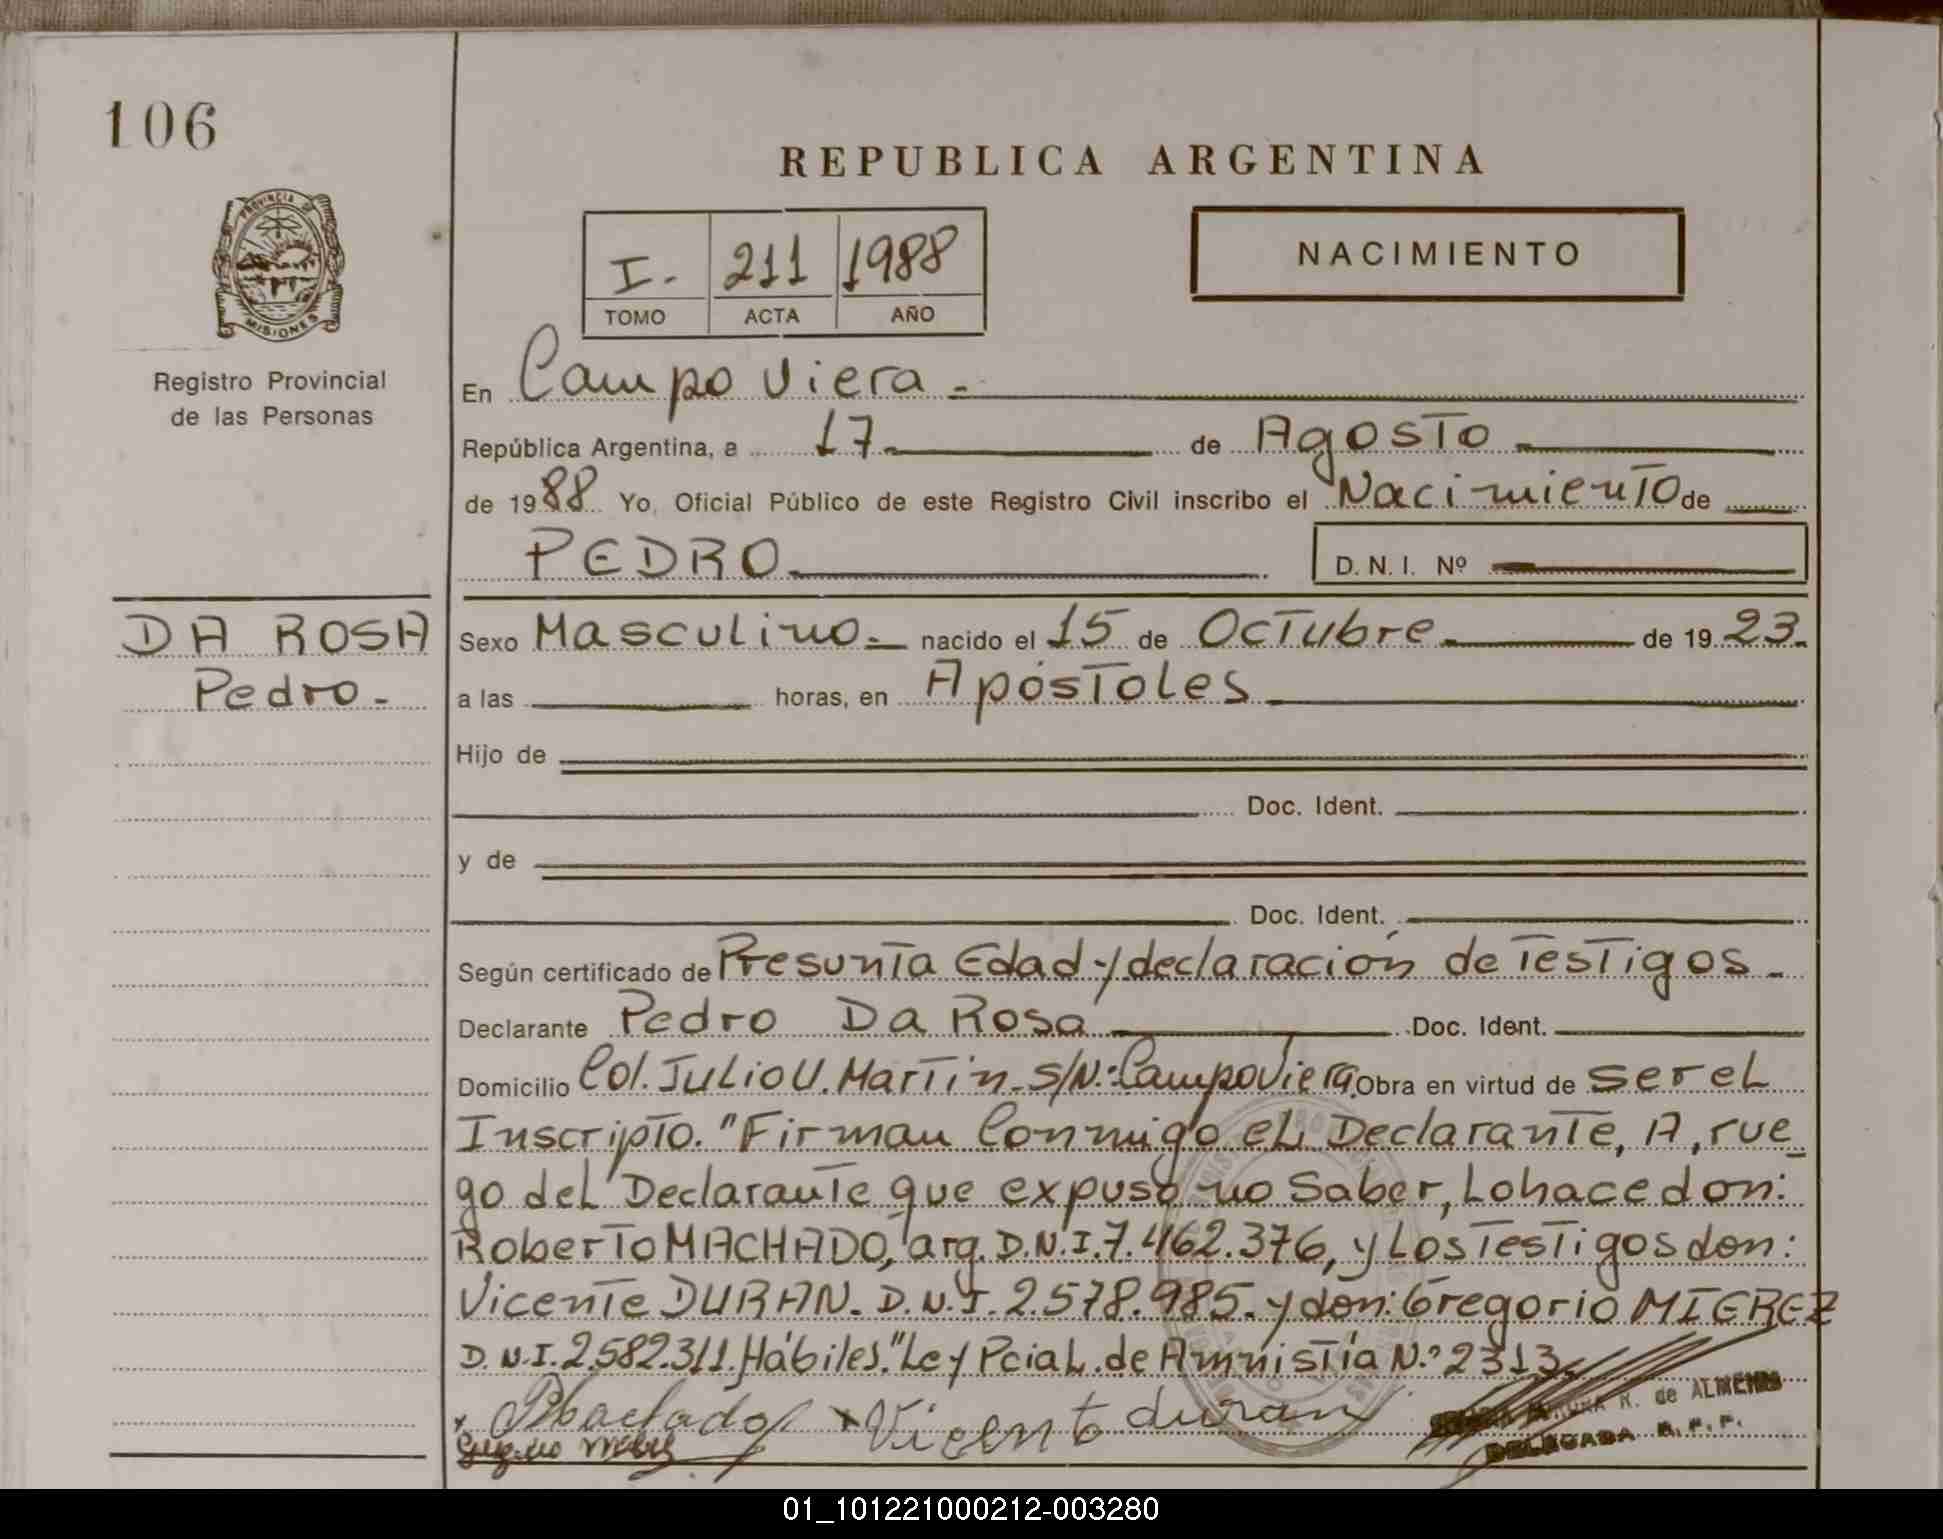 106
REPUBLICA ARGENTINA
PROVINCIA DE
MISIONES
Registro Provincial
de las Personas
I. 211 1988
TOMO ACTA AÑO
NACIMIENTO
En Campo Viera.
República Argentina, a 17 de Agosto
de 1988 Yo, Oficial Público de este Registro Civil inscribo el Nacimiento de
PEDRO. D. N. I. Nº
DA ROSA
Pedro.
Sexo Masculino. nacido el 15 de Octubre de 1923.
a las horas, en Apóstoles
Hijo de
Doc. Ident.
y de
Doc. Ident.
Según certificado de Presunta Edad y declaración de Testigos.
Declarante Pedro Da Rosa Doc. Ident.
Domicilio Col. Julio U. Martin. S/N.: Campo Viera. Obra en virtud de ser el
Inscripto. "Firman Conmigo el Declarante, A, rue
go del Declarante que expuso no Saber, Lo hace don:
Roberto MACHADO, arg. D.N.I. 7.462.376, y Los Testigos don:
Vicente DURAN. D.N.I. 2.578.985. y don: Gregorio MIEREZ
D.N.I. 2.582.311. Hábiles." Ley Pcial. de Amnistía N.º 2313.
Vicente duran
R. de ALMEIDA
DELEGADA R. P. P.
01_101221000212-003280